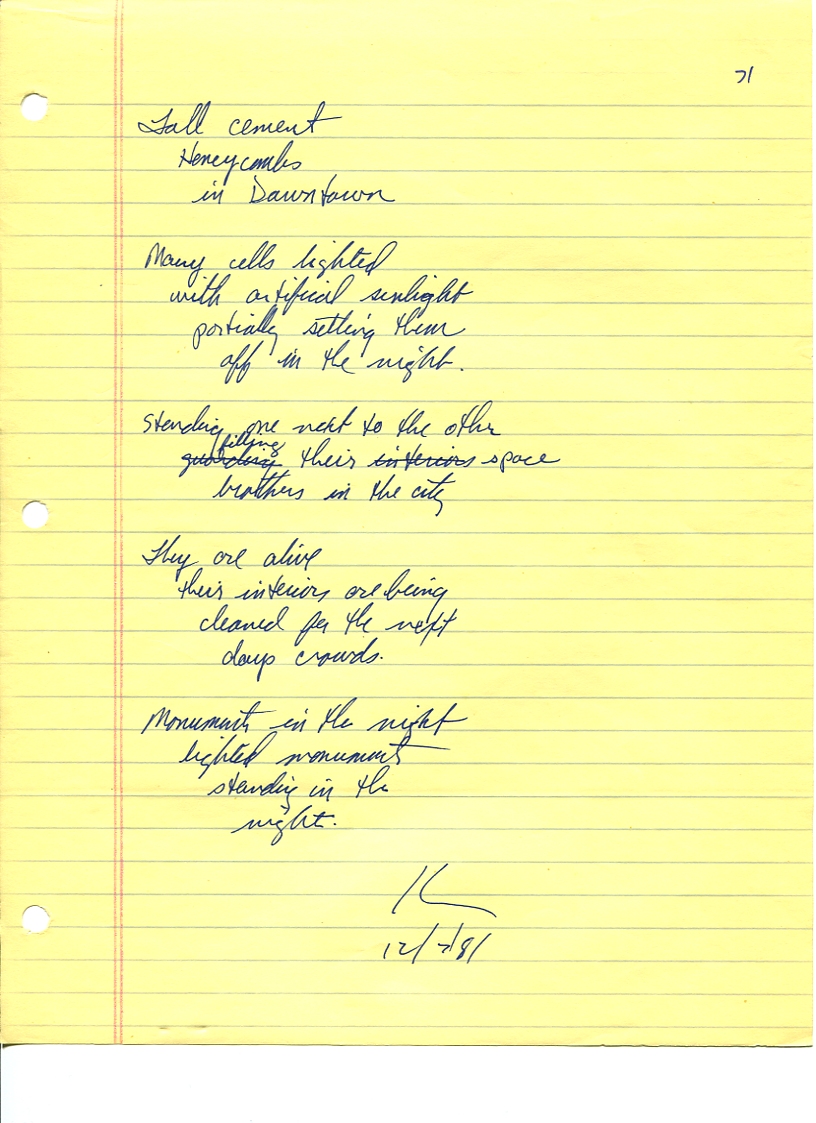 71
Tall cement
Honeycombs
in Downtown
Many cells lighted
with artificial sunlight
partially setting them
off in the night.
Standing one next to the other
filling
guarding their interiors space
brothers in the city
They are alive
their interiors are being
cleaned for the next
days crowds.
Monuments in the night
lighted monuments
standing in the
night.
K
12/7/81